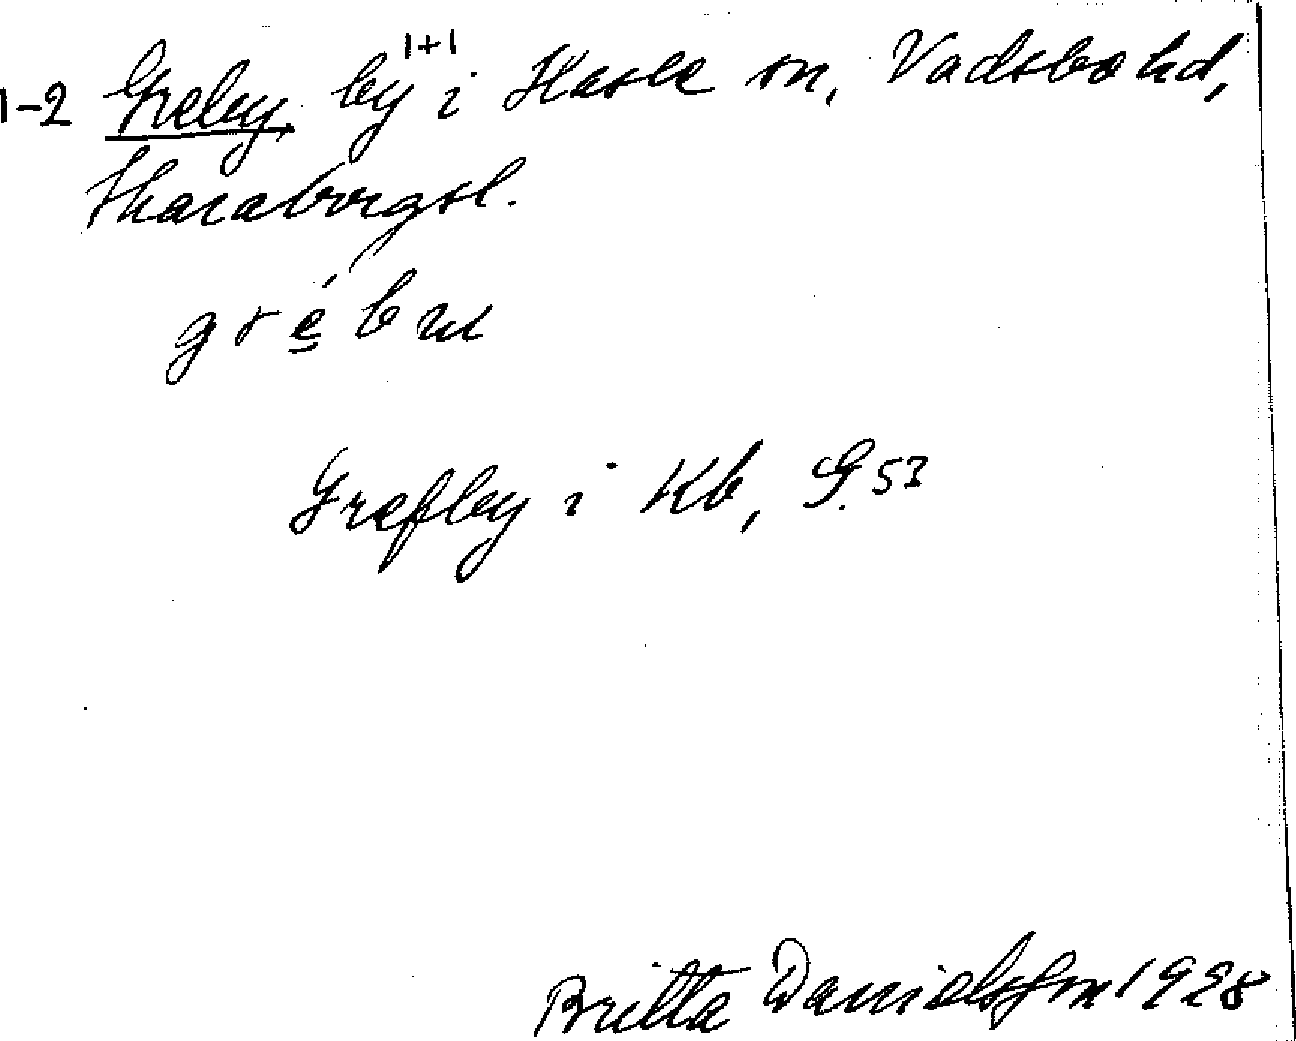 1+1
1-2 Greby by i Hasle sn, Vadsbo hd,
Skaraborgsl.
gré̳bɯ
Grefby i Kb, S. 53
Britta Danielsson 1928